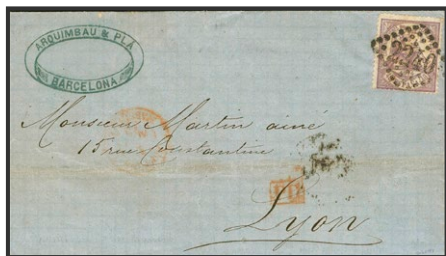 ARQUIMBAU & PLÁ
BARCELONA
2240
Monsieur Martin ainé
15 rue Constantine
Lyon